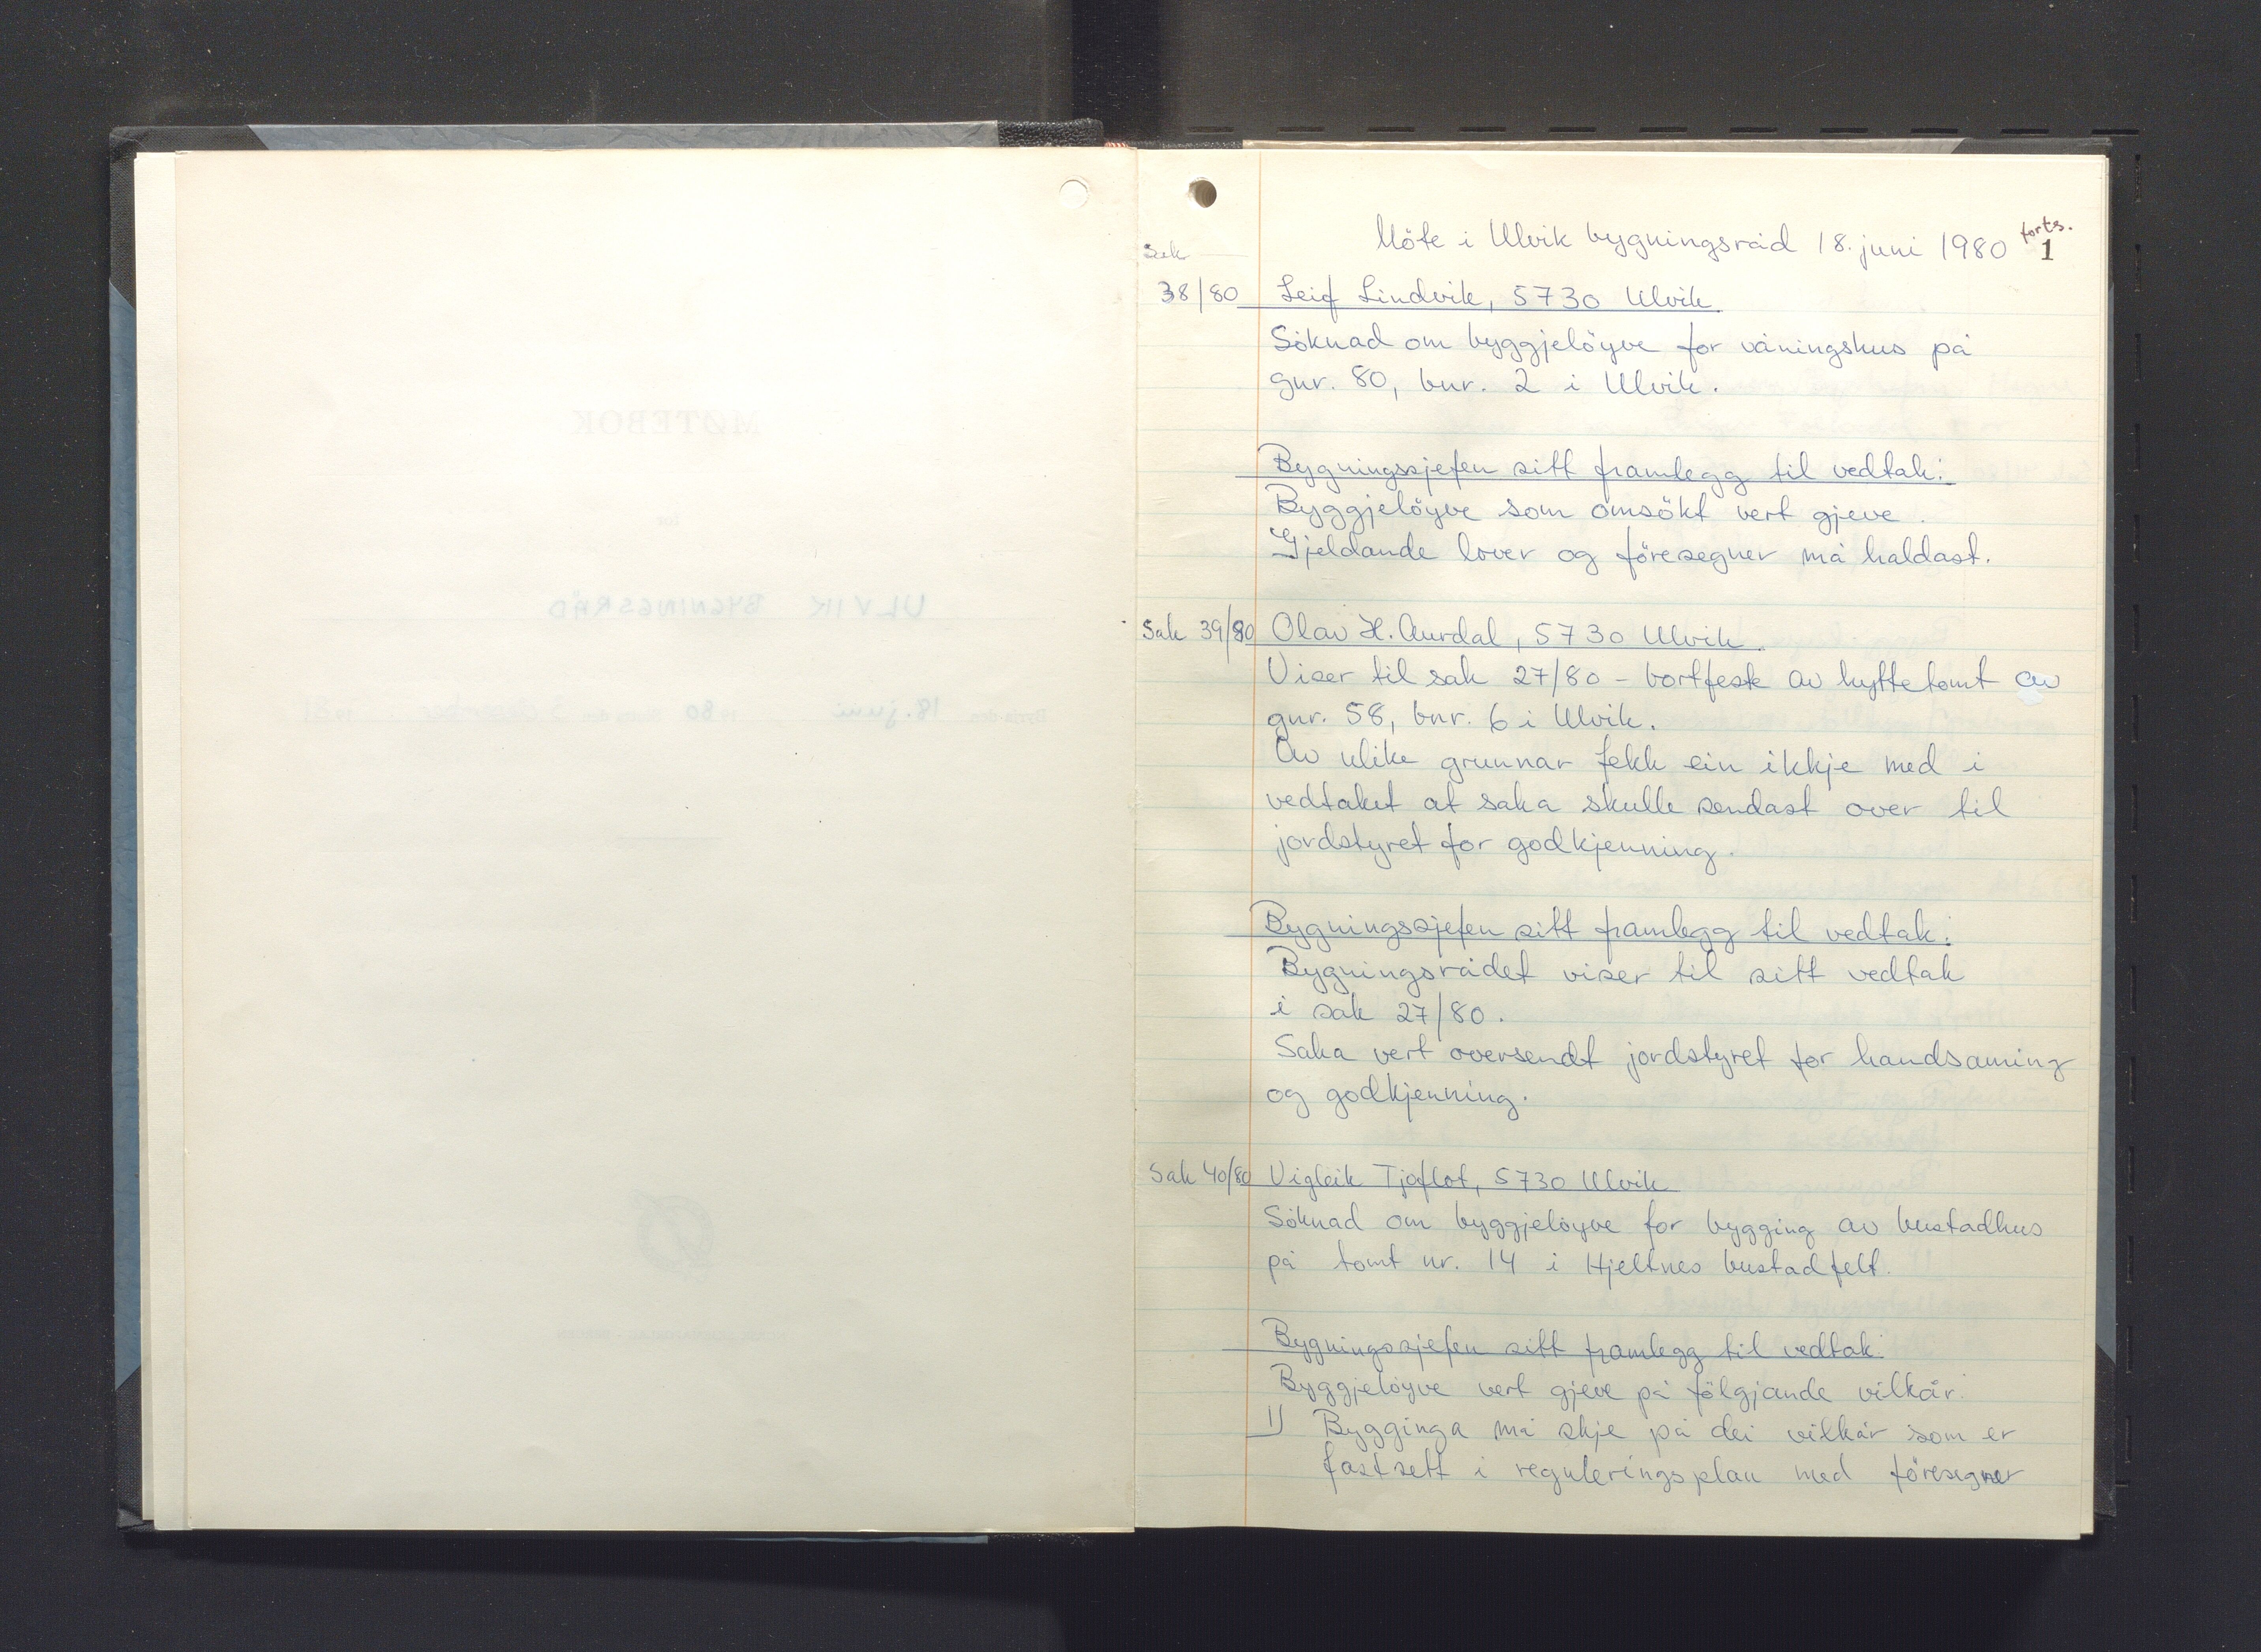 Möte i Ulvik bygningsråd 18. juni 1980 forts.
1
Sak
38/80 Leif Lindvik, 5730 Ulvik
Söknad om byggjelöyve for våningshus på
gnr. 80, bnr. 2 i Ulvik.
Bygningssjefen sitt framlegg til vedtak:
Byggjelöyve som omsökt vert gjeve.
Gjeldande lover og föresegner må haldast.
Sak 39/80 Olav H. Aurdal, 5730 Ulvik.
Viser til sak 27/80 - bortfeste av hyttetomt av
gnr. 58, bnr. 6 i Ulvik.
Av ulike grunnar fekk ein ikkje med i
vedtaket at saka skulle sendast over til
jordstyret for godkjenning.
Bygningssjefen sitt framlegg til vedtak:
Bygningsrådet viser til sitt vedtak
i sak 27/80.
Saka vert oversendt jordstyret for handsaming
og godkjenning.
Sak 40/80 Vigleik Tjoflot, 5730 Ulvik
Söknad om byggjelöyve for bygging av bustadhus
på tomt nr. 14 i Hjeltnes bustadfelt.
Bygningssjefen sitt framlegg til vedtak:
Byggjelöyve vert gjeve på fölgjande vilkår:
1) Bygginga må skje på dei vilkår som er
fastsett i reguleringsplan med föresegner